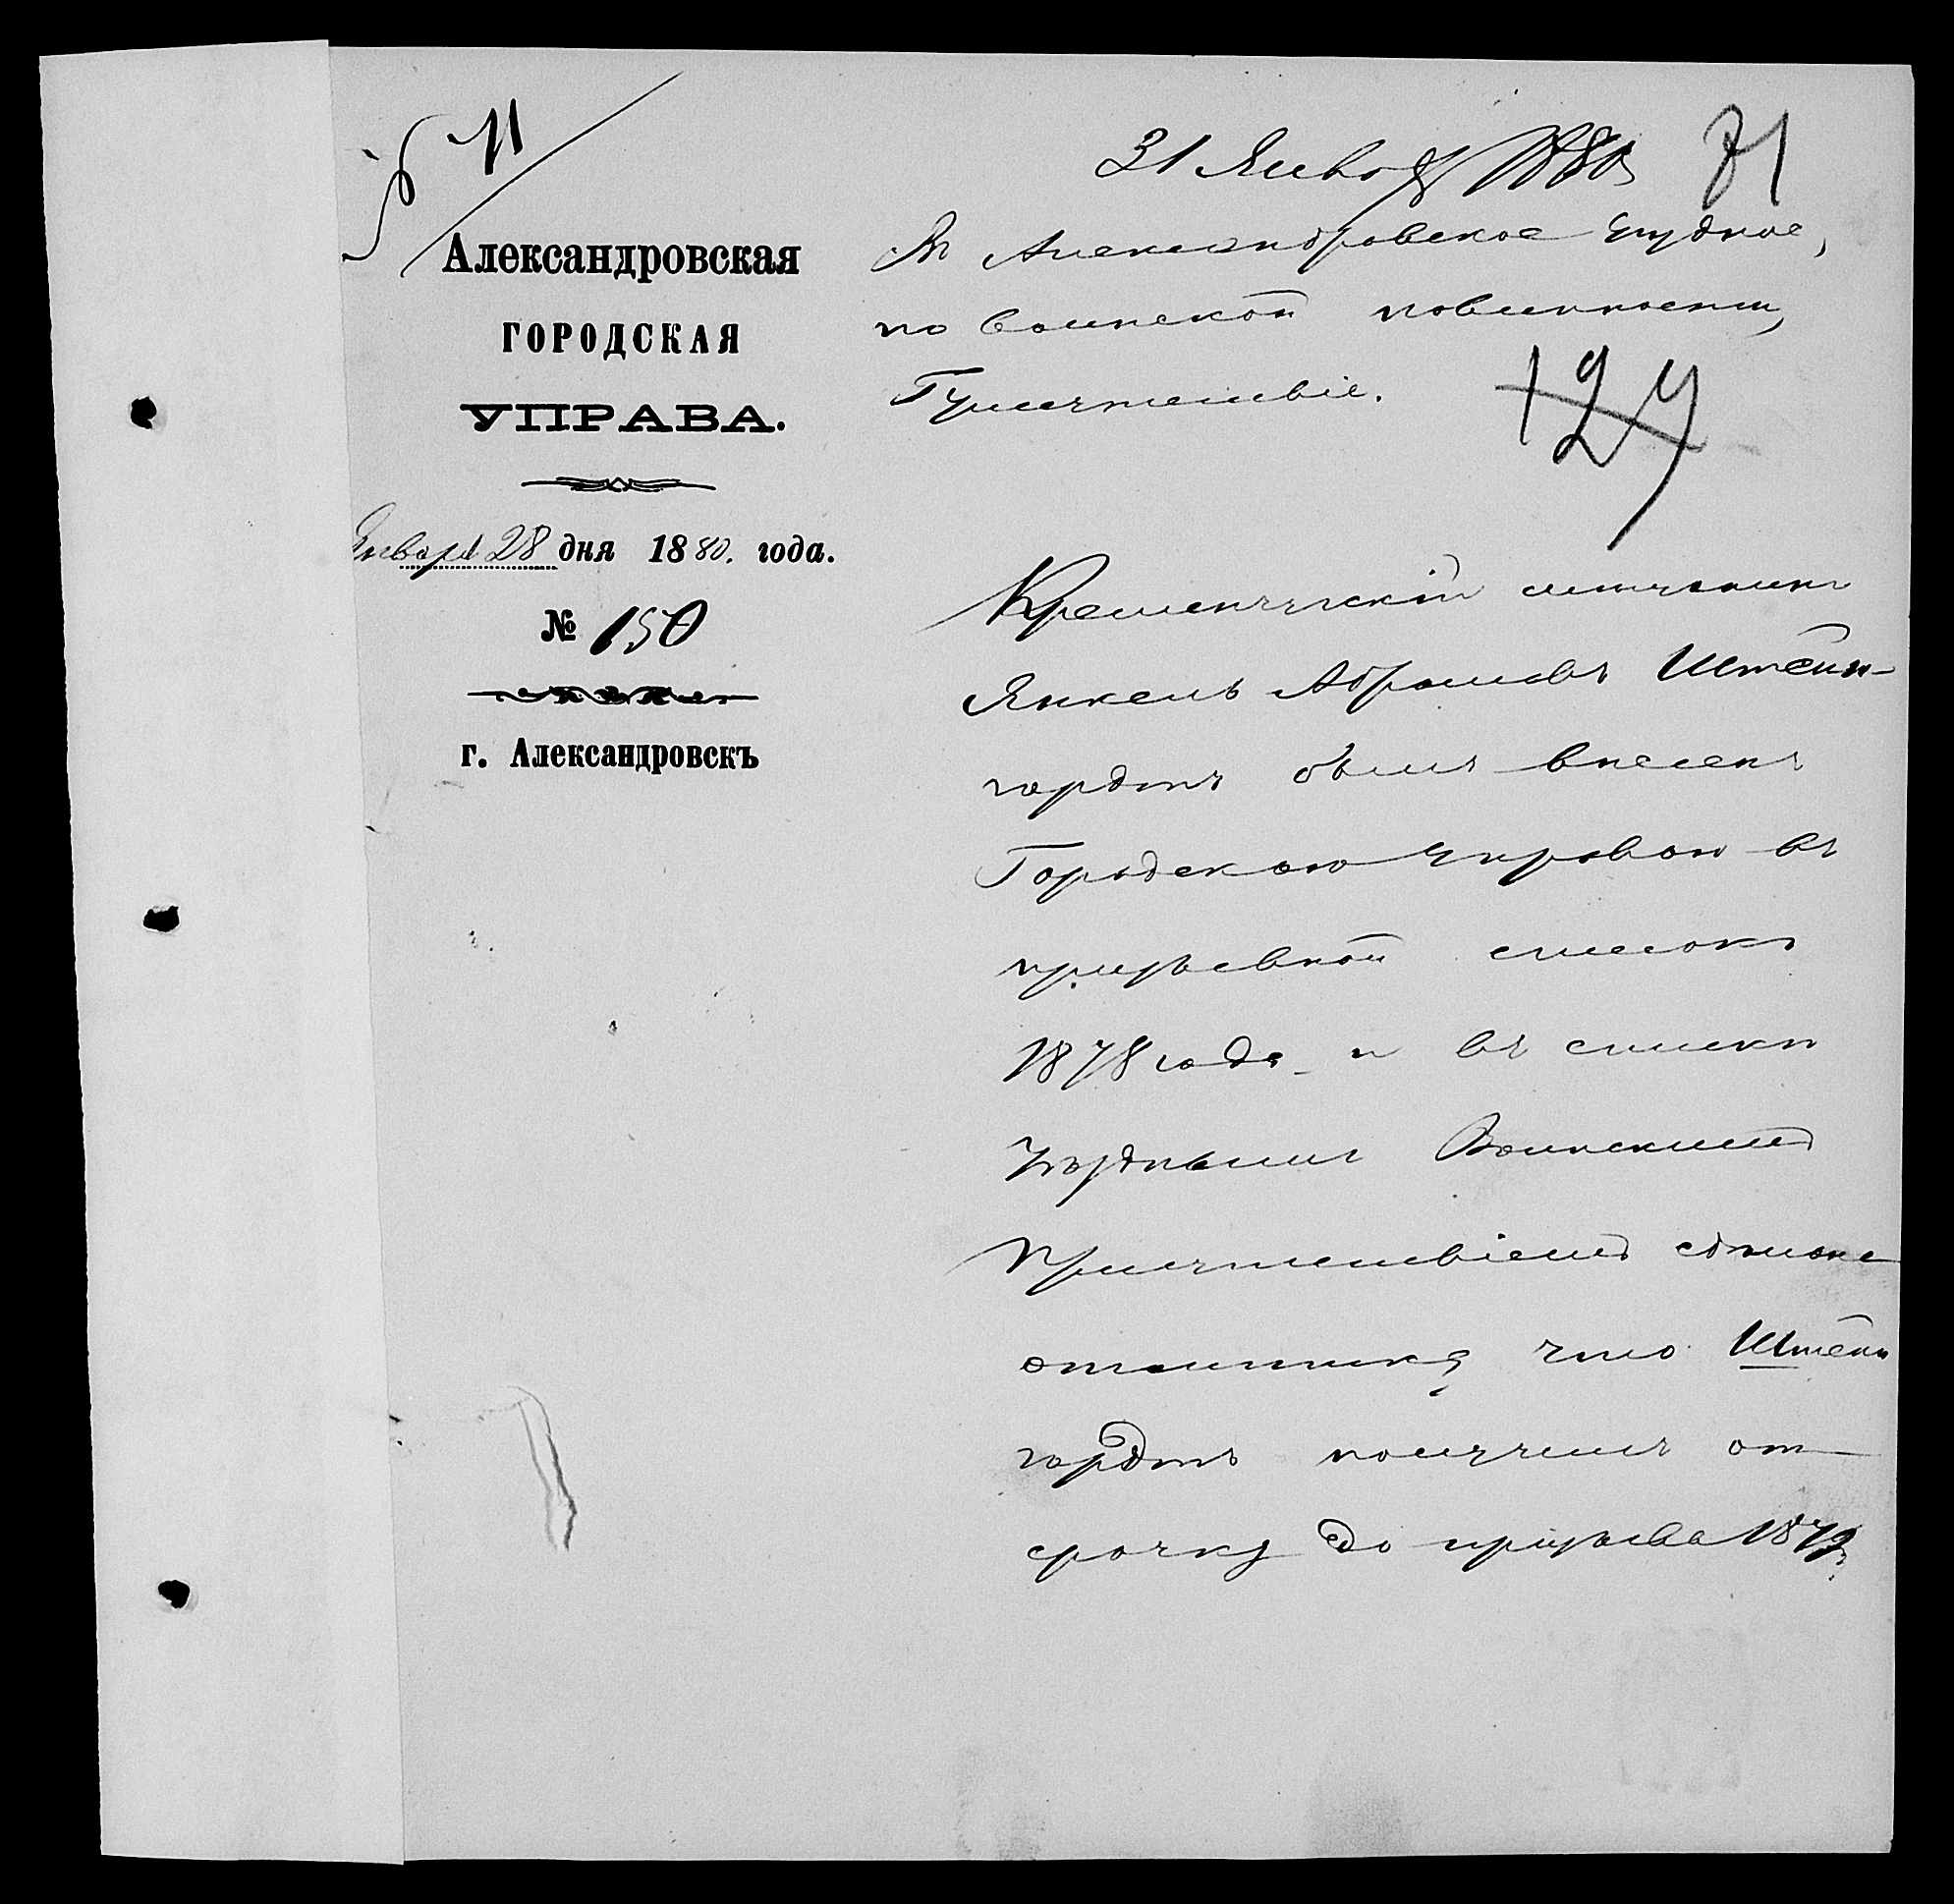 31 Января 1880
71
Александровская
ГОРОДСКАЯ
УПРАВА.
Января 28 дня 1880. года.
№ 150
г. Александровскъ
Въ Александровское Уѣздное,
по воинской повинности,
Присутствіе.
127
Кременчугскій мѣщанинъ
Янкель Абрамовъ Штейн-
гардтъ былъ внесенъ
Городскою Управою въ
призывной списокъ
1878 года и въ списки
Уѣзднымъ Воинскимъ
Присутствіемъ сдѣлана
отмѣтка, что Штейн
гардтъ получилъ от
срочку до призыва 1879